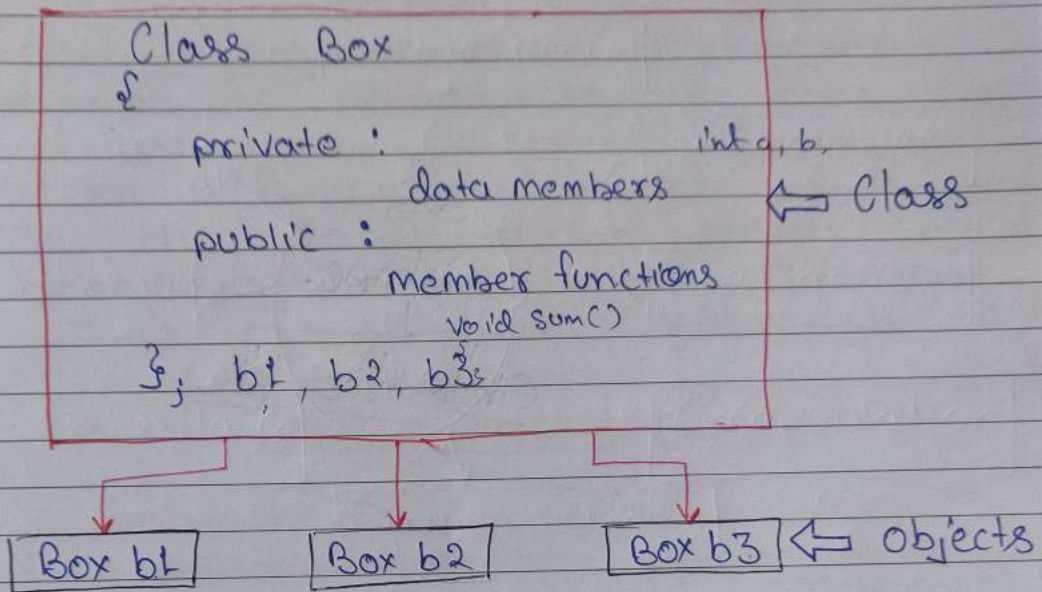 Class Box
{
private : int a, b,
data members
⇐ Class
public :
member functions
void sum()
}; b1, b2, b3;
Box b1 Box b2 Box b3 ⇐ Objects